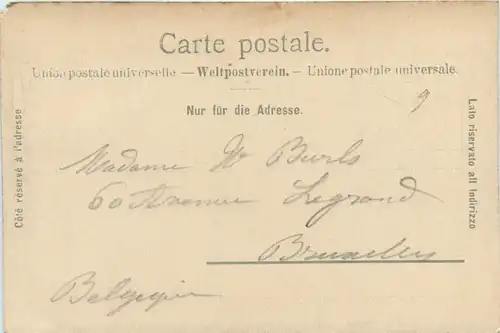 Carte postale.
Union postale universelle — Weltpostverein. — Unione postale universale.
Nur für die Adresse.
9
Côté réservé à l'adresse
Lato riservato all indirizzo
Madame W Burls
60 Avenue Legrand
Bruxelles
Belgique